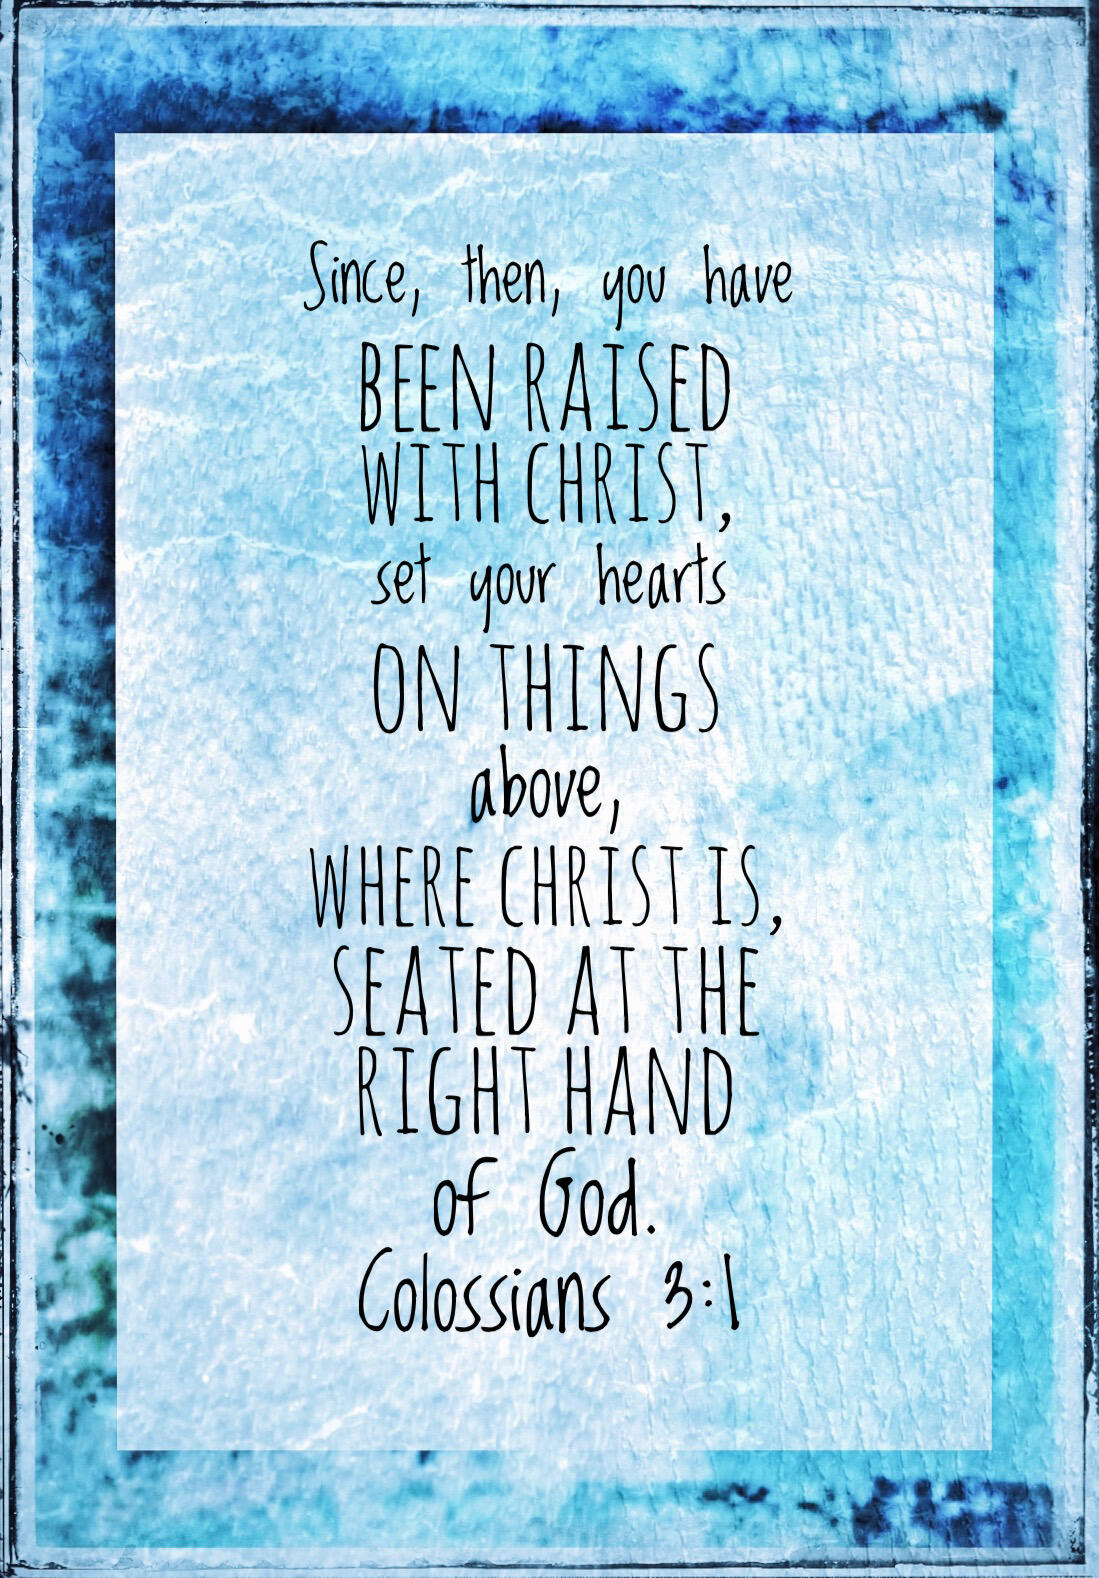 Since, then, you have
BEEN RAISED
WITH CHRIST,
set your hearts
ON THINGS
above,
WHERE CHRIST IS,
SEATED AT THE
RIGHT HAND
of God.
Colossians 3:1